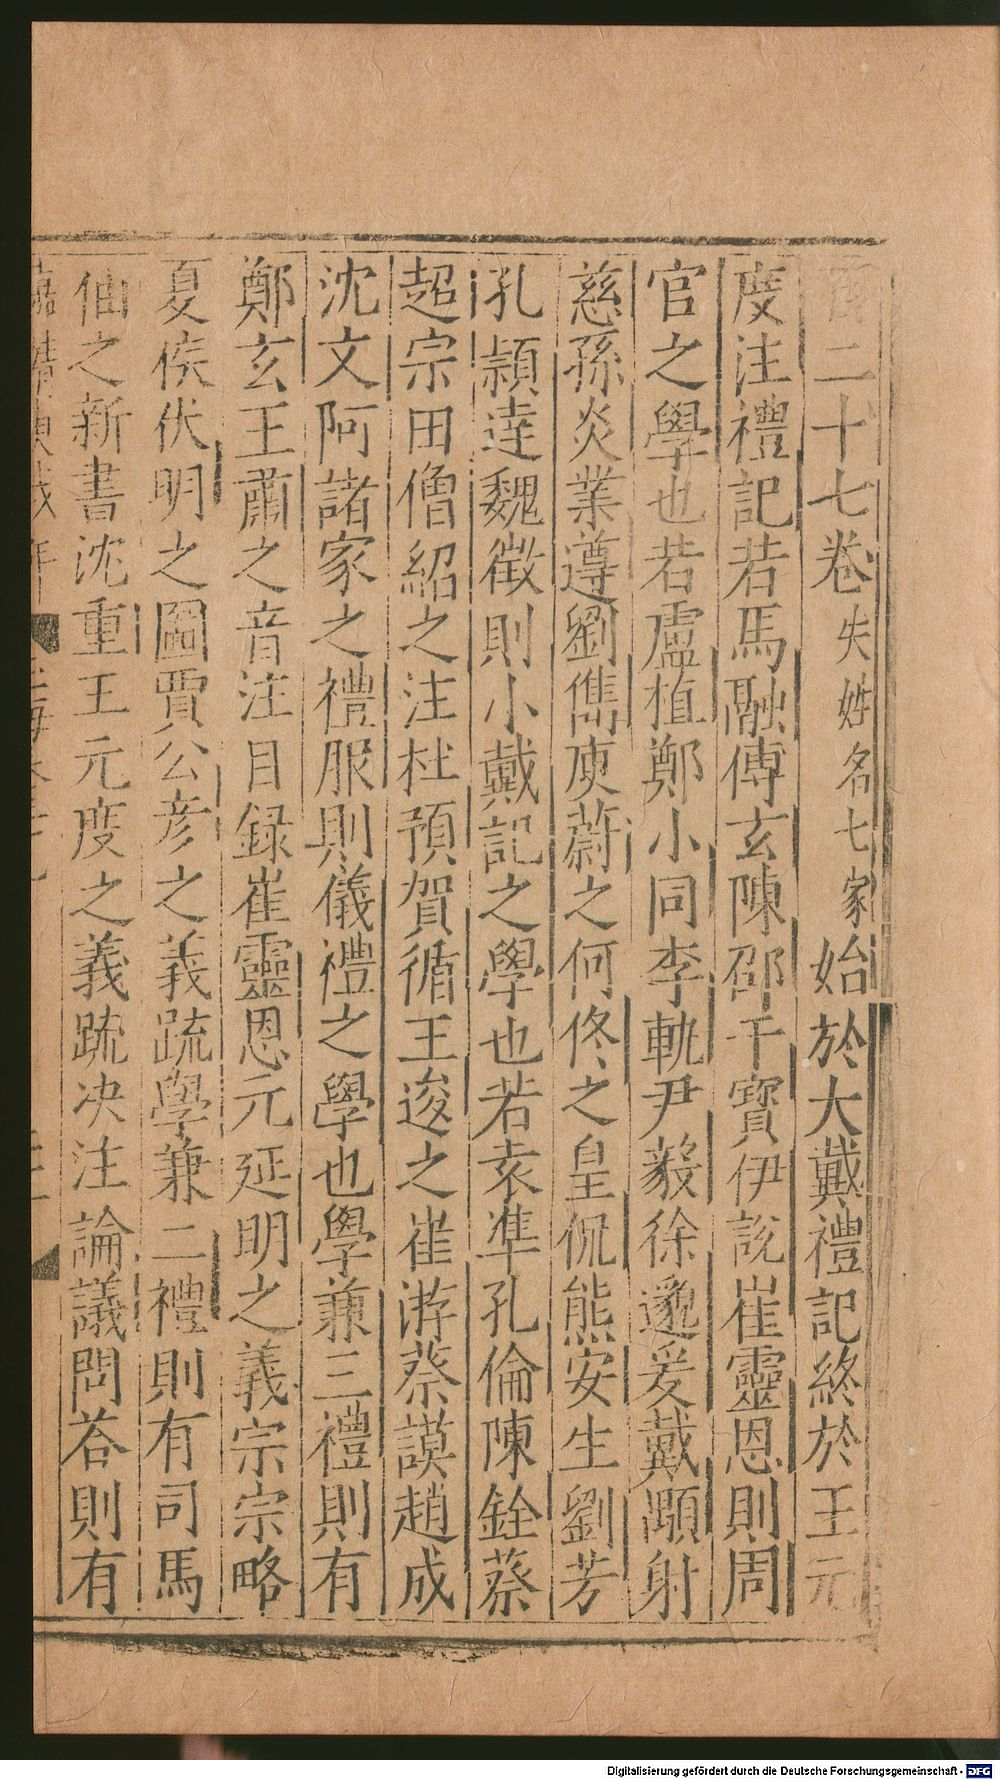 百二十七卷失姓名七家始於大戴禮記終於王元
度注禮記若馬融傅玄陳邵干寶伊說崔靈恩則周
官之學也若盧植鄭小同李軌尹毅徐邈爰戴顒射
慈孫炎業遵劉儁庾蔚之何佟之皇侃熊安生劉芳
孔頴逹魏徵則小戴記之學也若袁準孔倫陳銓蔡
超宗田僧紹之注杜預賀循王逡之崔游蔡謨趙成
沈文阿諸家之禮服則儀禮之學也學兼三禮則有
鄭玄王肅之音注目録崔靈恩元延明之義宗宗略
夏侯伏明之圖賈公彦之義疏學兼二禮則有司馬
伷之新書沈重王元度之義疏决注論議問荅則有
Digitalisierung gefördert durch die Deutsche Forschungsgemeinschaft - DFG